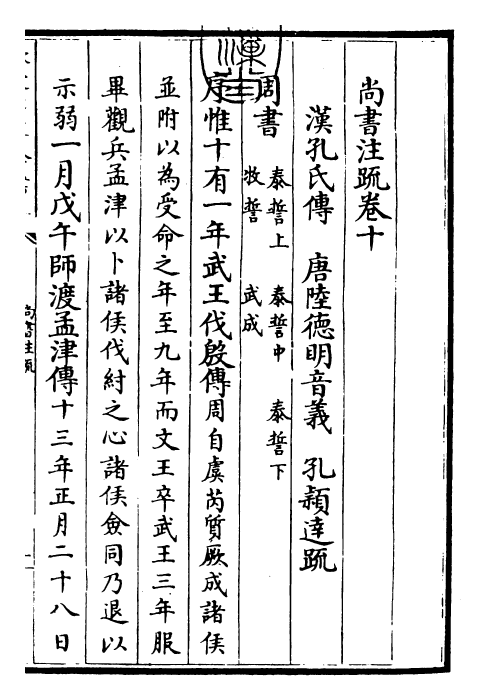 尚書注疏卷十
漢孔氏傳　唐陸德明音義　孔穎達疏
周書
泰誓上　泰誓中　泰誓下
牧誓　武成
序惟十有一年武王伐殷傳周自虞芮質厥成諸侯
並附以為受命之年至九年而文王卒武王三年服
畢觀兵孟津以卜諸侯伐紂之心諸侯僉同乃退以
示弱一月戊午師渡孟津傳十三年正月二十八日
尚書注疏